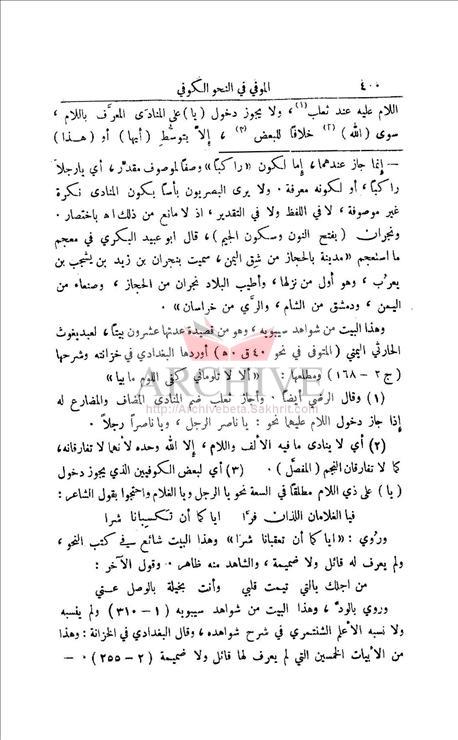 ٤٠٠ الموفي في النحو الكوفي
اللام عليه عند ثعلب (١) ، ولا يجوز دخول (يا) على المنادى المعرَّف باللام ،
سوى (الله) (٢) خلافًا للبعض (٣) ، إلاَّ بتوسُّطِ (أيها) أو (هـذا)
— إنما جاز عندهما ، إما لكون «راكبًا» وصفًا لموصوف مقدَّر ، أي يا رجلاً
راكبًا ، أو لكونه معرفة . ولا يرى البصريون بأسًا بكون المنادى نكرة
غير موصوفة ، لا في اللفظ ولا في التقدير ، اذ لا مانع من ذلك اه باختصار .
ونجران (بفتح النون وسكون الجيم) ، قال ابو عبيد البكري في معجم
ما استعجم «مدينة بالحجاز من شق اليمن ، سميت بنجران بن زيد بن يشجب بن
يعرُب ، وهو أول من نزلها ، وأطيب البلاد نجران من الحجاز ، وصنعاء من
اليمن ، ودمشق من الشام ، والرَّي من خراسان» .
وهذا البيت من شواهد سيبويه ، وهو من قصيدة عدتها عشرون بيتًا ، لعبديغوث
الحارثي اليمني (المتوفى في نحو ٤٠ ق . ه) أوردها البغدادي في خزانته وشرحها
(ج ٢ – ١٦٨) ومطلعها : «ألا لا تلوماني كفى اللوم ما بيا»
ARCHIVE
http://Archivebeta.Sakhrit.com
(١) وقال الرضي أيضًا . وأجاز ثعلب ضم المنادى المضاف والمضارع له
إذا جاز دخول اللام عليهما نحو : يا ناصر الرجل ، ويا ناصراً رجلاً .
(٢) أي لا ينادى ما فيه الألف واللام ، إلا الله وحده لأنهما لا تفارقانه ،
كما لا تفارقان النجم (المفصَّل) . (٣) أي لبعض الكوفيين الذي يجوز دخول
(يا) على ذي اللام مطلقًا في السعة نحو يا الرجل ويا الغلام واحتجوا بقول الشاعر :
فيا الغلامان اللذان فرَّا اياكما أن تكسبانا شرا
ورُوي : «اياكما أن تعقبانا شرًا» وهذا البيت شائع في كتب النحو ،
ولم يعرف له قائل ولا ضميمة ، والشاهد منه ظاهر . وقول الآخر :
من اجلك يالتي تيمت قلبي وأنت بخيلة بالوصل عني
وروي بالودّ ، وهذا البيت من شواهد سيبويه (١ – ٣١٠) ولم ينسبه
ولا نسبه الأعلم الشنتمري في شرح شواهده ، وقال البغدادي في الخزانة : وهذا
من الأبيات الخمسين التي لم يعرف لها قائل ولا ضميمة (٢ – ٢٥٥) . —